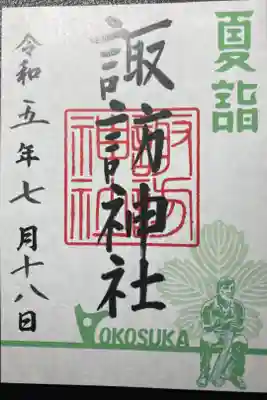 夏詣
諏訪神社
諏訪神社
令和五年七月十八日
YOKOSUKA